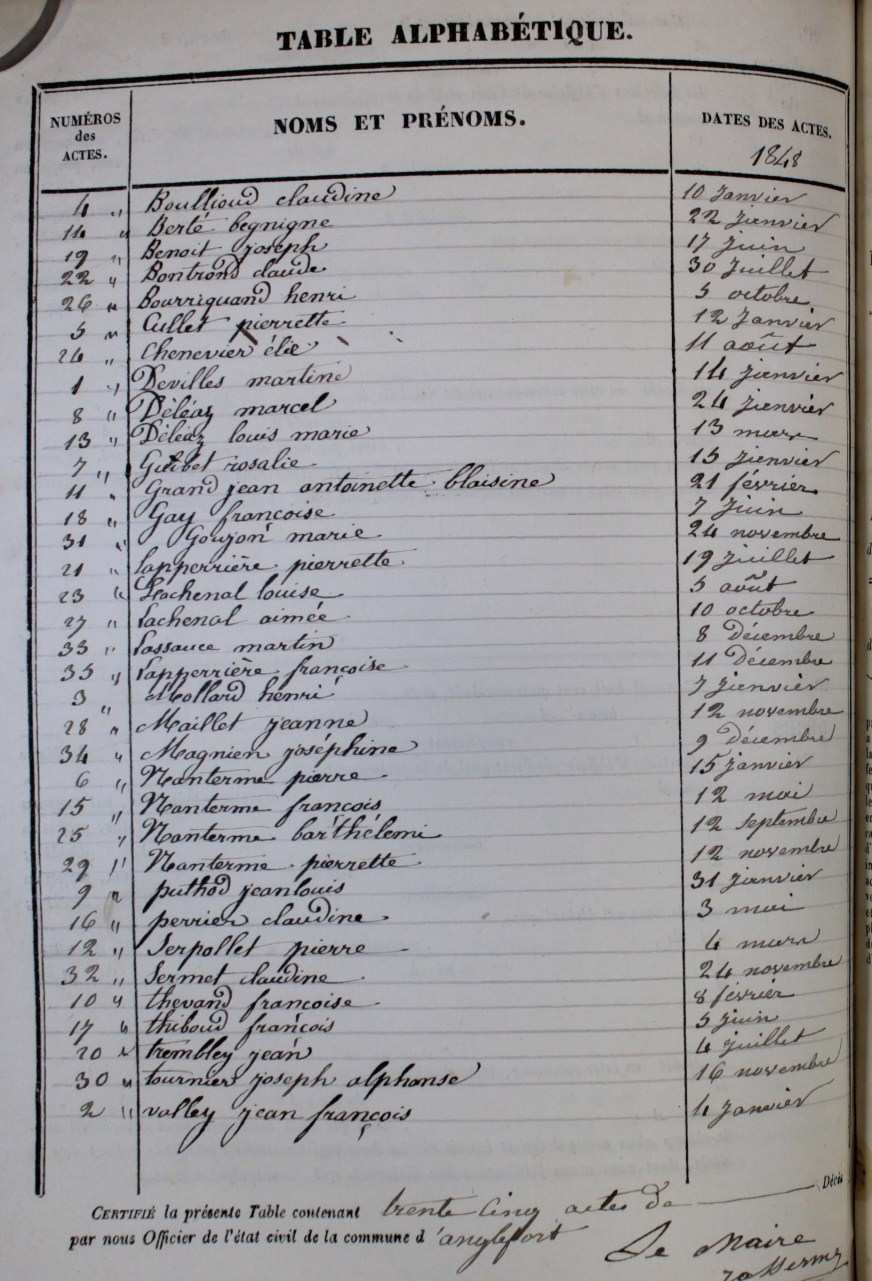 TABLE ALPHABÉTIQUE.
NUMÉROS des ACTES. NOMS ET PRÉNOMS. DATES DES ACTES.
1848
4 " Boullioud claudine 10 Janvier
14 " Berté begnigne 22 jienvier
19 " Benoit joseph 17 Juin
22 " Bontrond claude 30 Juillet
26 " Bourriquand henri 5 octobre
5 " Cullet pierrette 12 Janvier
24 " Chenevier élie 11 août
1 " Devilles martine 14 jienvier
8 " Déléaz marcel 24 jienvier
13 " Déléaz louis marie 13 mars
7 " Guibet rosalie 15 jienvier
11 " Grand jean antoinette blaisine 21 février
18 " Gay françoise 7 Juin
31 " Goujon marie 24 novembre
21 " Lapperrière pierrette 19 Juillet
23 " Lachenal louise 5 août
27 " Lachenal aimée 10 octobre
33 " Lassauce martin 8 Décembre
35 " Lapperrière françoise 11 Décembre
3 " Mollard hénri 7 jienvier
28 " Maillet jeanne 12 novembre
34 " Magnien joséphine 9 Décembre
6 " Nanterme pierre 15 janvier
15 " Nanterme francois 12 mai
25 " Nanterme barthélemi 12 septembre
29 " Nanterme pierrette 12 novembre
9 " puthod jeanlouis 31 jianvier
16 " perrier claudine 3 mai
12 " Serpollet pierre 4 mars
32 " Sermet claudine 24 novembre
10 " thevand francoise 8 février
17 " thiboud francois 5 juin
20 " trembley jean 4 juillet
30 " tournier joseph alphonse 16 novembre
2 " valley jean françois 4 janvier
CERTIFIÉ la présente Table contenant trente cinq actes de Décès
par nous Officier de l'état civil de la commune d'anglefort
Le Maire